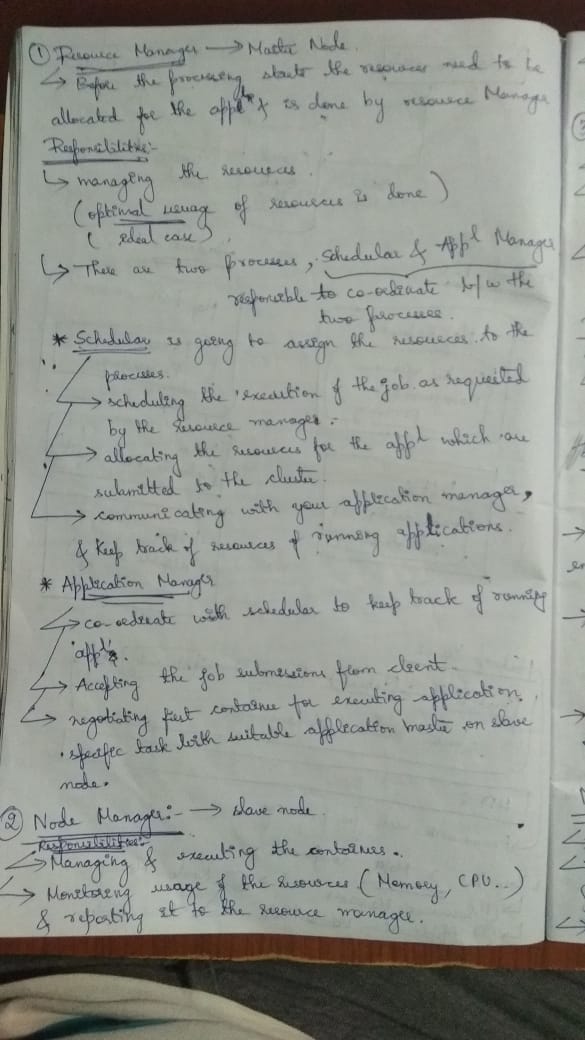 ① Resource Manager → Master Node.
↳ Before the processing starts the resources need to be
allocated for the appl^n & is done by resource Manager
Responsibilities:-
↳ managing the resources.
(optimal usuag of resources is done)
( ideal case).
↳ There are two processes, Schedular & Appl^n Manager
responsible to co-ordinate b/w the
two processes.
* Schedular is going to assign the resources to the
processes.
→ scheduling the execution of the job as requested
by the resource manager.
→ allocating the resources for the appl^n which are
submitted to the cluster.
→ communicating with your application manager,
& keep track of resources of running applications.
* Application Manager
↳ co-ordinate with schedular to keep track of running
appl^ns.
↳ Accepting the job submissions from client.
↳ negotiating first container for executing application.
specific task with suitable application master on slave
node.
② Node Manager:- → slave node.
Responsibilities:-
↳ Managing & executing the containers.
↳ Monitoring usage of the resources (Memory, CPU...)
& reporting it to the resource manager.